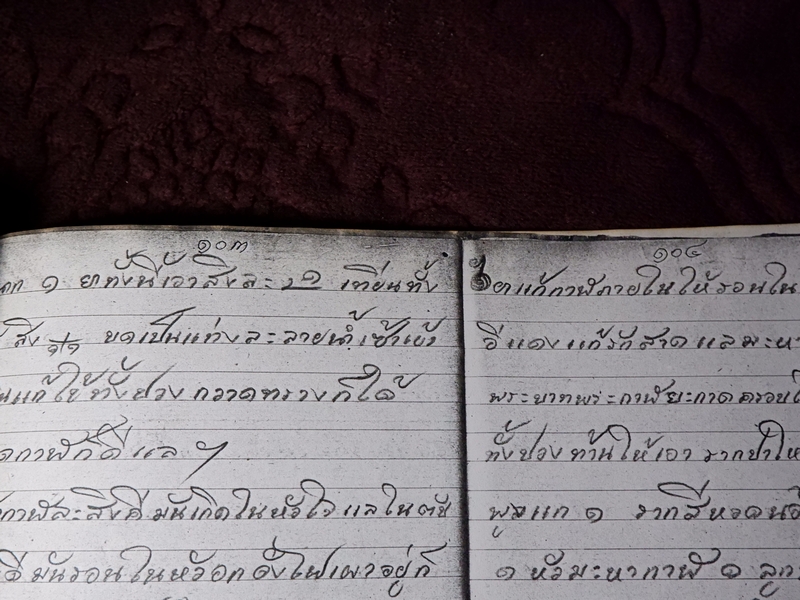 ๑๐๓
๑ ยาทั้งนี้เอาสิ่งละ ๑ เทียนทั้ง
สิ่ง บดเป็นแท่งละลายน้ำเข้าแ
แก้ไข้ทั้งปวง กวาดทรวงก็ได้
กาฬก็ดี แล ฯ
กาฬละสิงคีมันเกิดในหัวใจ แลในตับ
มันรอนในหัวอก ดั่งไฟเผาอยู่ก็
๑๐๔
ยาแก้กาฬภายในให้รอนใน
อีแดงแก้รักสาด แลมะหา
พระบาทพระกาฬยะกาดครอบ
ทั้งปวง ท่านให้เอา รากป่าให
แก ๑ รากสีหวด
๑ หัวมะหากาฬ ๑ ลูก